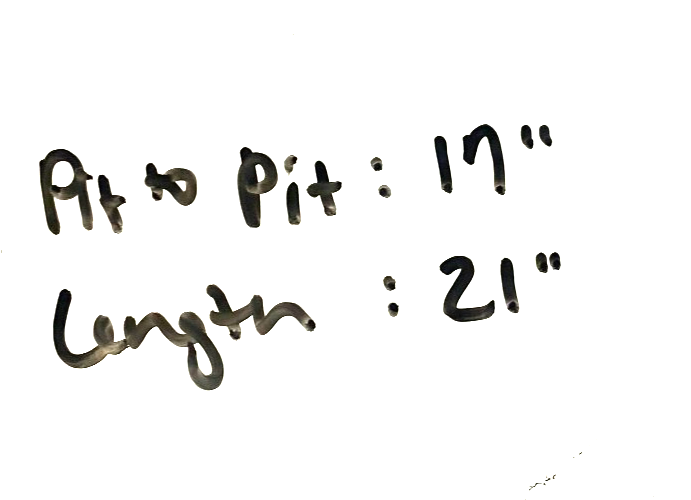 Pit to Pit : 17"
Length : 21"